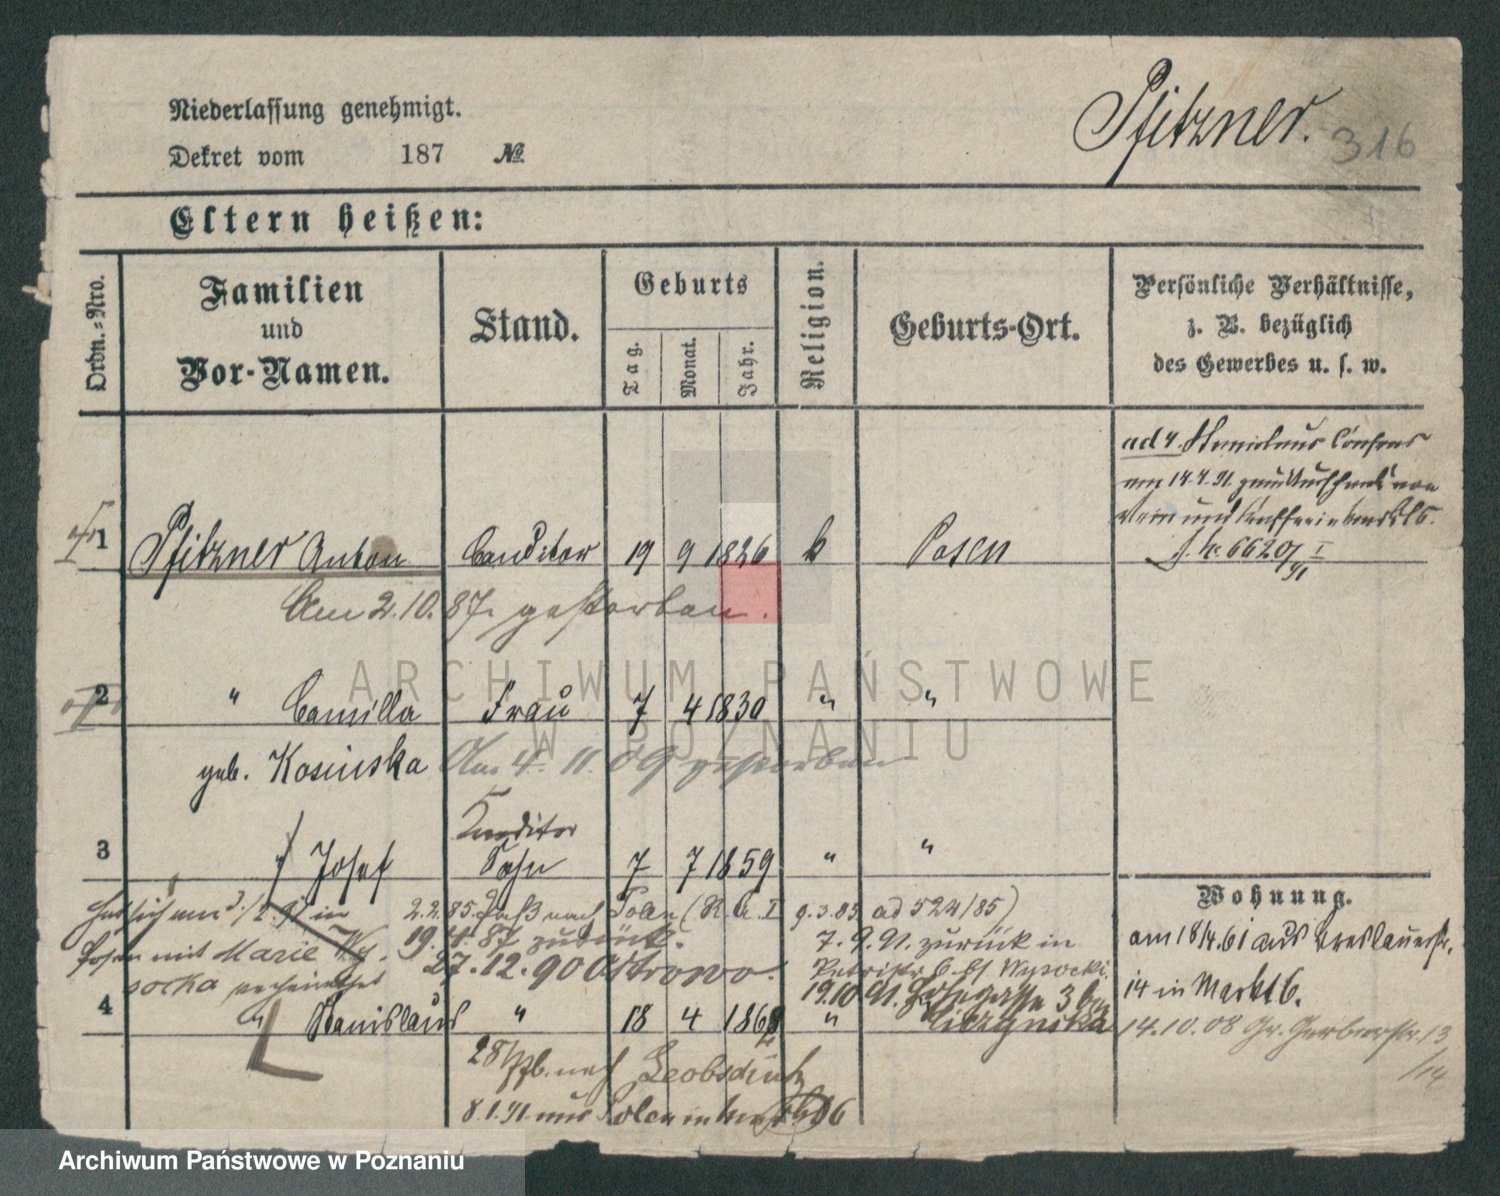 Niederlassung genehmigt.
Dekret vom 187 №
Pfitzner.
316
Eltern heißen:
Ordn.=Nro.
Familien
und
Vor-Namen.
Stand.
Geburts
Tag.
Monat.
Jahr.
Religion.
Geburts-Ort.
Persönliche Verhältnisse,
z. B. bezüglich
des Gewerbes u. s. w.
ad 4. Stanislaus Consens
J. No 6620/91 I
1 Pfitzner Anton Conditor 19 9 1826 k Posen
Am 2.10.87. gestorben.
2 " Camilla Frau 7 4 1830 " "
geb. Kosinska Am 4. 11. 09 gestorben
Konditor
3 " Josef Sohn 7 7 1859 " "
Hat sich am in
2.2.85. Paß nach Polen (R. A. I 9.3.83 ad 524/85)
Posen mit Marie Wy-
socka verheirathet
19.4.87 zurück.
27.12.90 Ostrowo.
7.9.91. zurück in
Petristr 6 bei Wysocki.
19.10 91. 3 bei
4 " Stanislaus " 18 4 1862 "
Leobschütz
8.1.91. aus Polen in
Wohnung.
am 18/4.61 aus Breslauerstr.
14 in Markt 6.
14.10.08 Gr. Gerberstr. 13
/14
ARCHIWUM PAŃSTWOWE
W POZNANIU
Archiwum Państwowe w Poznaniu